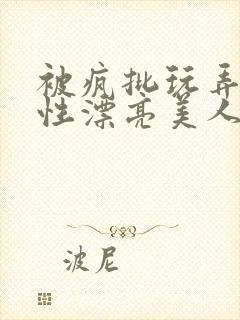 被疯批玩弄
性漂亮美人
波尼